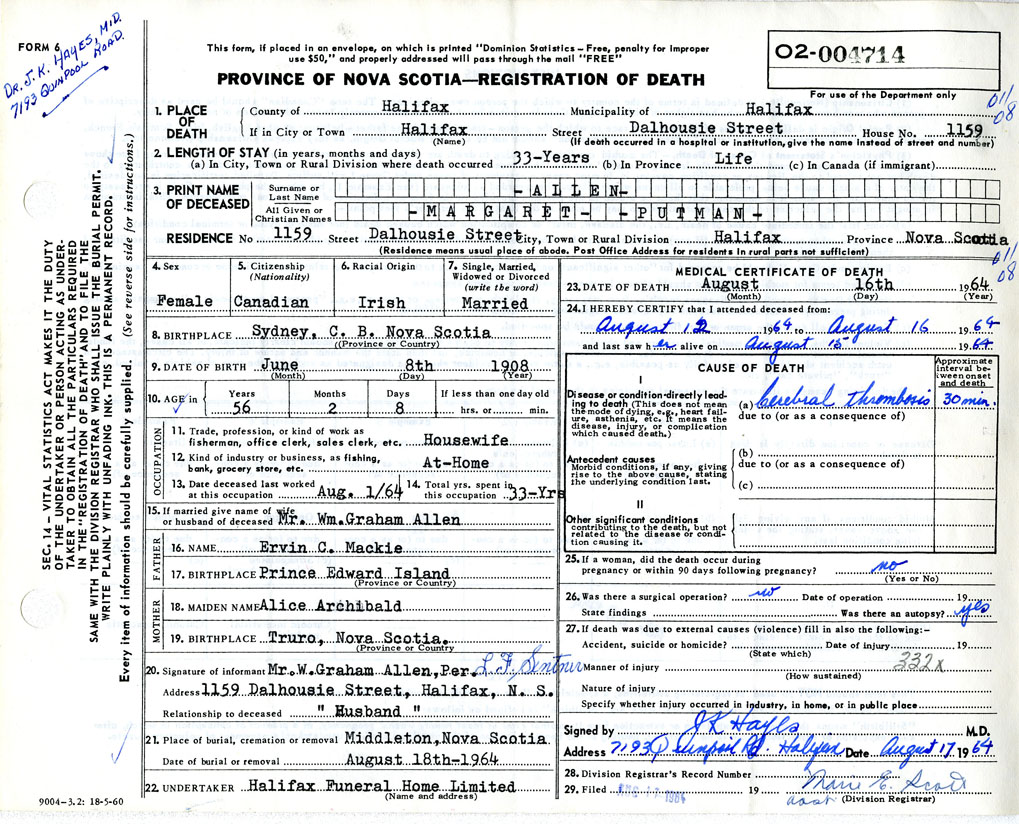 FORM 6
DR. J. K. HAYES, M.D.
7193 QUINPOOL ROAD.
This form, if placed in an envelope, on which is printed "Dominion Statistics – Free, penalty for improper
use $50," and properly addressed will pass through the mail "FREE"
PROVINCE OF NOVA SCOTIA—REGISTRATION OF DEATH
02-004714
For use of the Department only
011
08
1. PLACE OF DEATH
County of Halifax Municipality of Halifax
If in City or Town Halifax Street Dalhousie Street House No. 1159
(Name) (If death occurred in a hospital or institution, give the name instead of street and number)
2. LENGTH OF STAY (in years, months and days)
(a) In City, Town or Rural Division where death occurred 33-Years (b) In Province Life (c) In Canada (if immigrant)
3. PRINT NAME OF DECEASED
Surname or Last Name -ALLEN-
All Given or Christian Names -MARGARET- -PUTMAN-
RESIDENCE No 1159 Street Dalhousie Street City, Town or Rural Division Halifax Province Nova Scotia
(Residence means usual place of abode. Post Office Address for residents in rural parts not sufficient)
011
08
4. Sex
Female
5. Citizenship
(Nationality)
Canadian
6. Racial Origin
Irish
7. Single, Married,
Widowed or Divorced
(write the word)
Married
8. BIRTHPLACE Sydney, C. B. Nova Scotia
(Province or Country)
9. DATE OF BIRTH June 8th 1908
(Month) (Day) (Year)
10. AGE in Years Months Days If less than one day old
56 2 8 hrs. or min.
OCCUPATION
11. Trade, profession, or kind of work as
fisherman, office clerk, sales clerk, etc. Housewife
12. Kind of industry or business, as fishing,
bank, grocery store, etc. At-Home
13. Date deceased last worked
at this occupation Aug. 1/64
14. Total yrs. spent in
this occupation 33-Yrs
15. If married give name of wife
or husband of deceased Mr. Wm.Graham Allen
FATHER
16. NAME Ervin C. Mackie
17. BIRTHPLACE Prince Edward Island
(Province or Country)
MOTHER
18. MAIDEN NAME Alice Archibald
19. BIRTHPLACE Truro, Nova Scotia.
(Province or Country)
20. Signature of informant Mr.W.Graham Allen,Per.
Address 1159 Dalhousie Street, Halifax, N. S.
Relationship to deceased " Husband "
21. Place of burial, cremation or removal Middleton,Nova Scotia
Date of burial or removal August 18th-1964
22. UNDERTAKER Halifax Funeral Home Limited
(Name and address)
MEDICAL CERTIFICATE OF DEATH
23. DATE OF DEATH August 16th 1964
(Month) (Day) (Year)
24. I HEREBY CERTIFY that I attended deceased from:
August 12 1964 to August 16 1964
and last saw her alive on August 15 1964
CAUSE OF DEATH
Approximate
interval be-
tween onset
and death
I
Disease or condition directly lead-
ing to death (This does not mean
the mode of dying, e.g., heart fail-
ure, asthenia, etc. It means the
disease, injury, or complication
which caused death.)
(a) Cerebral thrombosis 30 min.
due to (or as a consequence of)
Antecedent causes
Morbid conditions, if any, giving
rise to the above cause, stating
the underlying condition last.
(b)
due to (or as a consequence of)
(c)
II
Other significant conditions
contributing to the death, but not
related to the disease or condi-
tion causing it.
25. If a woman, did the death occur during
pregnancy or within 90 days following pregnancy? no
(Yes or No)
26. Was there a surgical operation? no Date of operation 19
State findings Was there an autopsy? yes
27. If death was due to external causes (violence) fill in also the following:—
Accident, suicide or homicide? Date of injury 19
(State which)
332x
Manner of injury
(How sustained)
Nature of injury
Specify whether injury occurred in industry, in home, or in public place
Signed by J K Hayes M.D.
Address 7193 Quinpool Rd Halifax Date August 17 1964
28. Division Registrar's Record Number
29. Filed AUG 17 1964 19 Marie E. Scott
(Division Registrar)
SEC. 14 – VITAL STATISTICS ACT MAKES IT THE DUTY
OF THE UNDERTAKER OR PERSON ACTING AS UNDER-
TAKER TO OBTAIN ALL THE PARTICULARS REQUIRED
IN THE "REGISTRATION OF DEATH" AND TO FILE THE
SAME WITH THE DIVISION REGISTRAR WHO SHALL ISSUE THE BURIAL PERMIT.
WRITE PLAINLY WITH UNFADING INK. THIS IS A PERMANENT RECORD.
Every item of information should be carefully supplied. (See reverse side for instructions.)
9004–3.2: 18-5-60